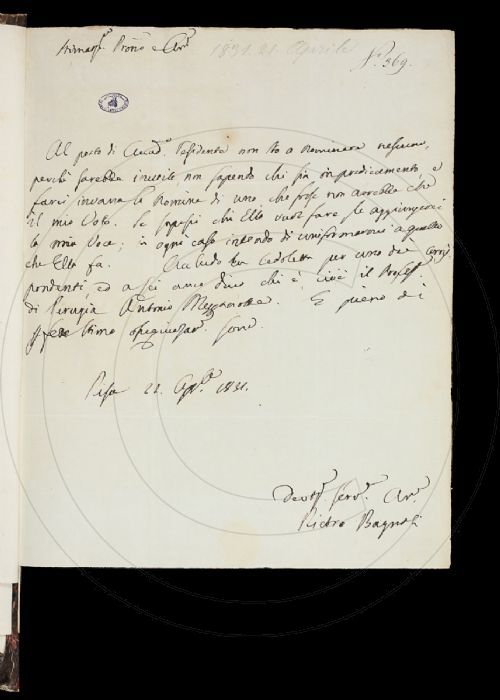 Stimatis.º Pron.e e Am.º 1831. 21. Aprile
Nº. 369.
Al posto di Accad.º Residente non sto a nominare nessuno,
perchè sarebbe inutile, non sapendo chi sia in predicamento, e
farei invano la Nomina di uno, che forse non avrebbe che
il mio Voto. Se sapessi chi Ella vuol fare le aggiungerei
la mia Voce; in ogni caso intendo di uniformarmi a quello
che Ella fa. Accludo una Cedoletta per uno dei Corris-
pondenti, ed a Lei anco dico chi è, cioè il Profess.
di Perugia Antonio Mezzanotte. E pieno di
stima sono
Pisa 21. Ap.le 1831.
Devot. Serv. Am.º
Pietro Bagnoli